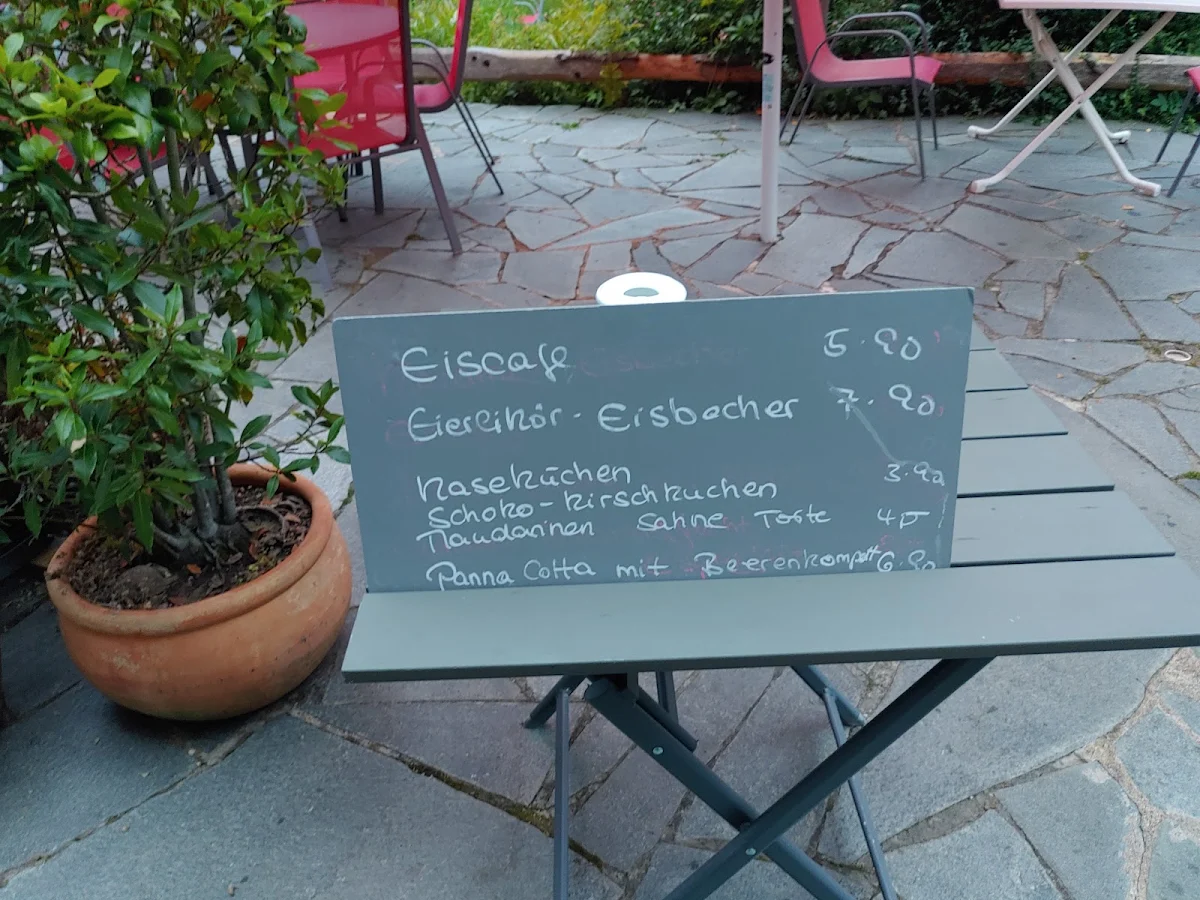 Eiscafe 5.90
Eierlikör-Eisbecher 7.90
Käseküchen 3.90
Schoko-Kirschkuchen
Maudarinen Sahne Torte
Panna Cotta mit Beerenkompott 6.90